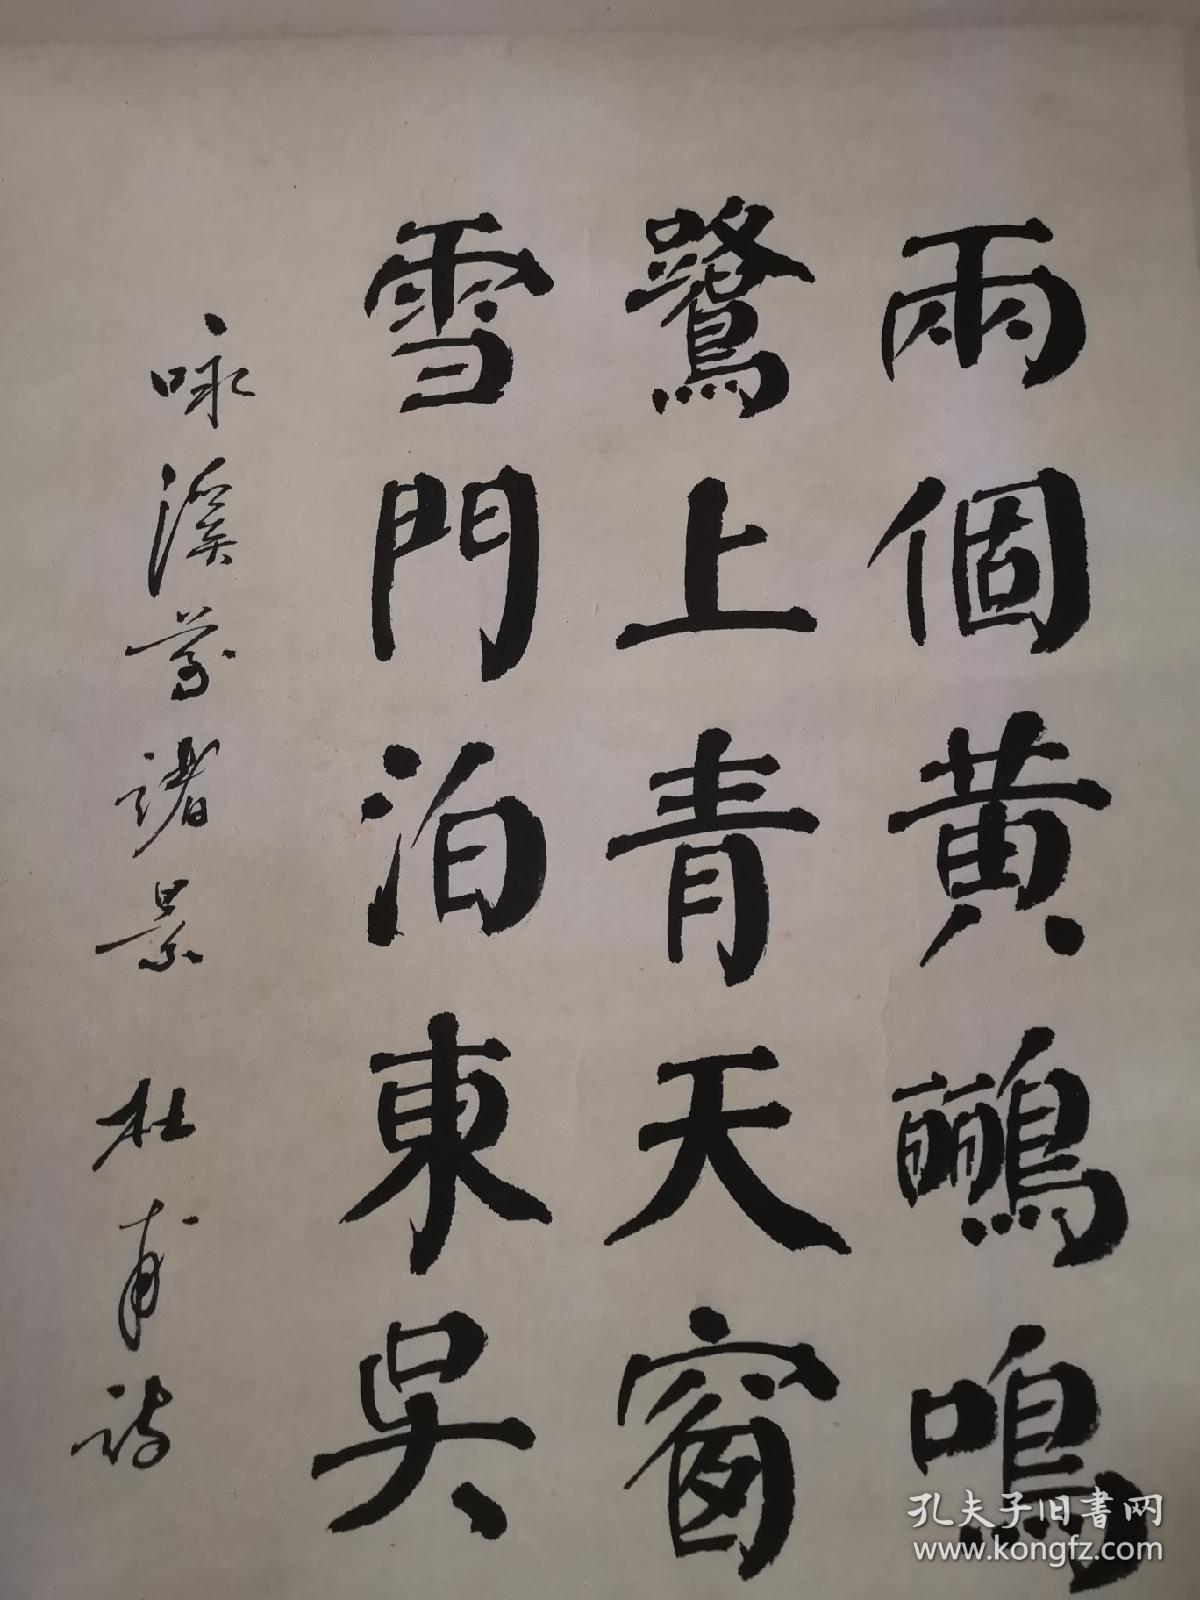 兩個黃鸝鳴
鷺上青天窗
雪門泊東吳
咏溪草諸景 杜甫詩
孔夫子旧書网
www.kongfz.com